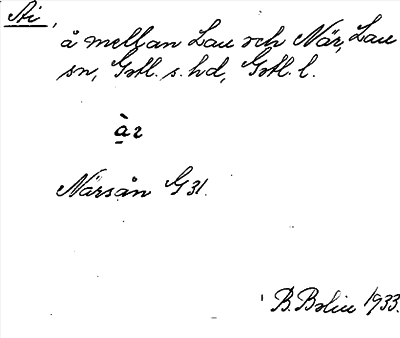 Ai,
å mellan Lau och När, Lau
sn, Gotl. s. hd, Gotl. l.
Närsån G 31.
B. Bolin 1933.